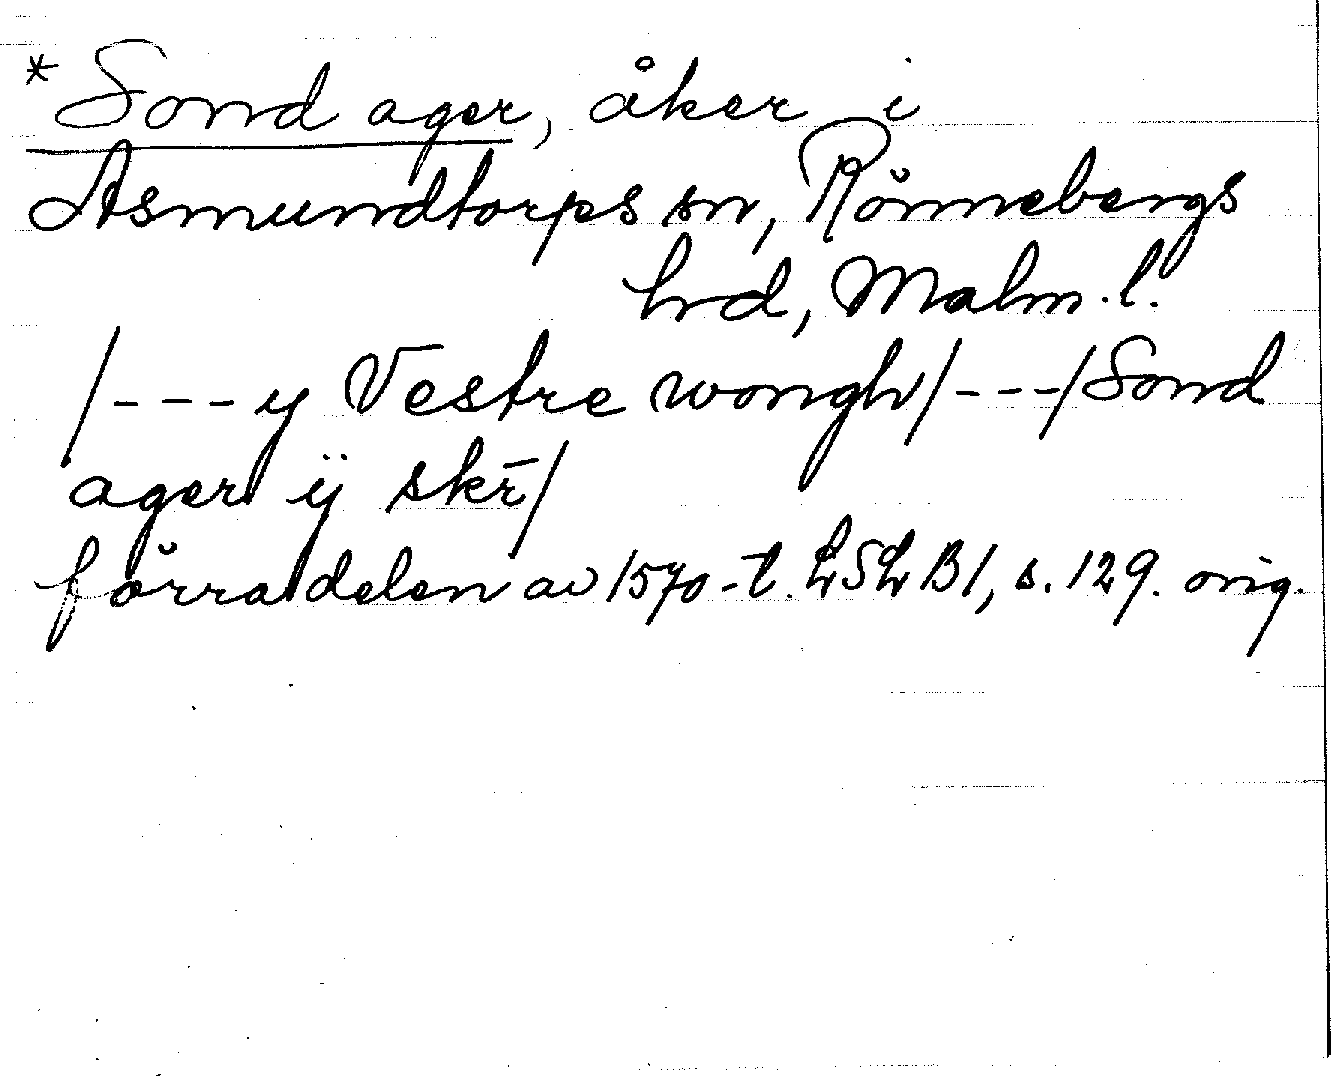 *Sond ager, åker i
Asmundtorps sn, Rönnebergs
hrd, Malm.l.
/---y Vestre wongh/---/Sond
ager ÿ skr̄/
förra delen av 1570-t. LSL B1, s. 129. orig.